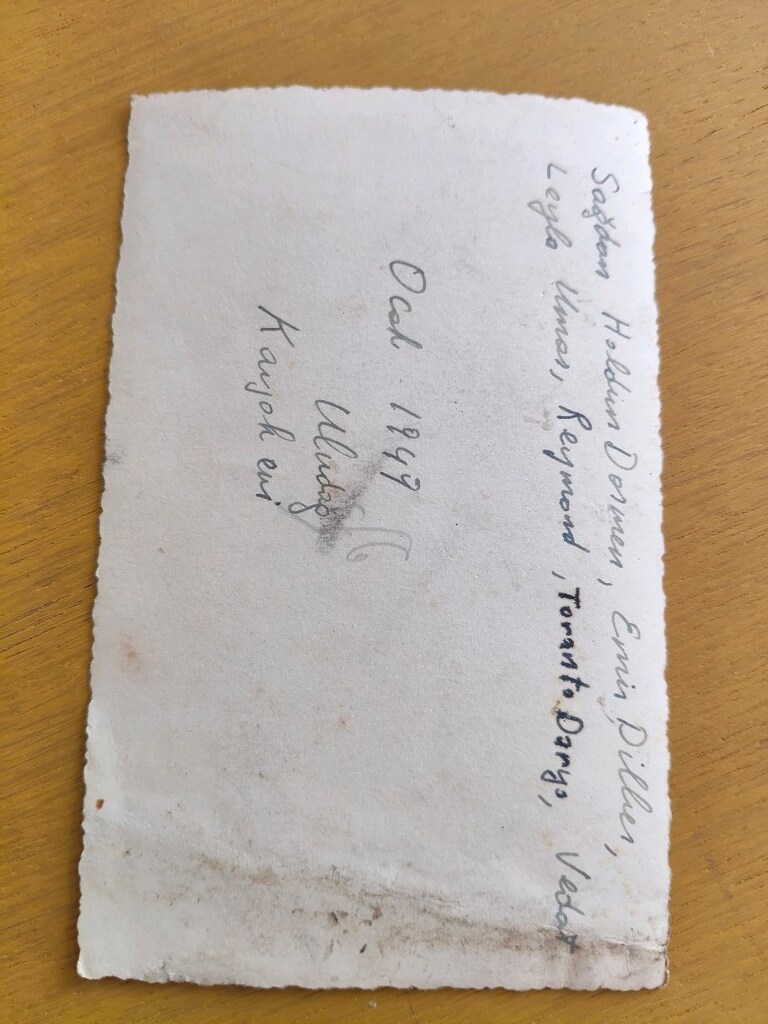 Sağdan Haldun Dormen, Emin Dilber,
Leyla Umar, Reymond, Toranto Daryo, Vedat
Ocak 1949
Uludağ
Kayak evi